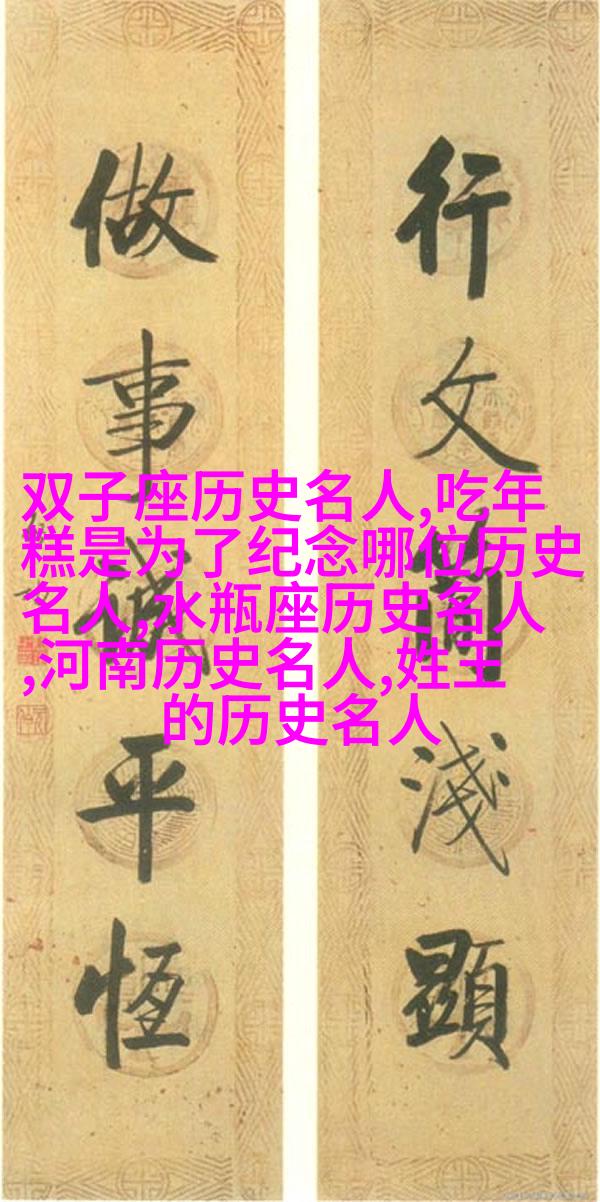 行文簡淺顯
做事誠平恆
双子座历史名人,吃年
糕是为了纪念哪位历史
名人,水瓶座历史名人
,河南历史名人,姓王
的历史名人